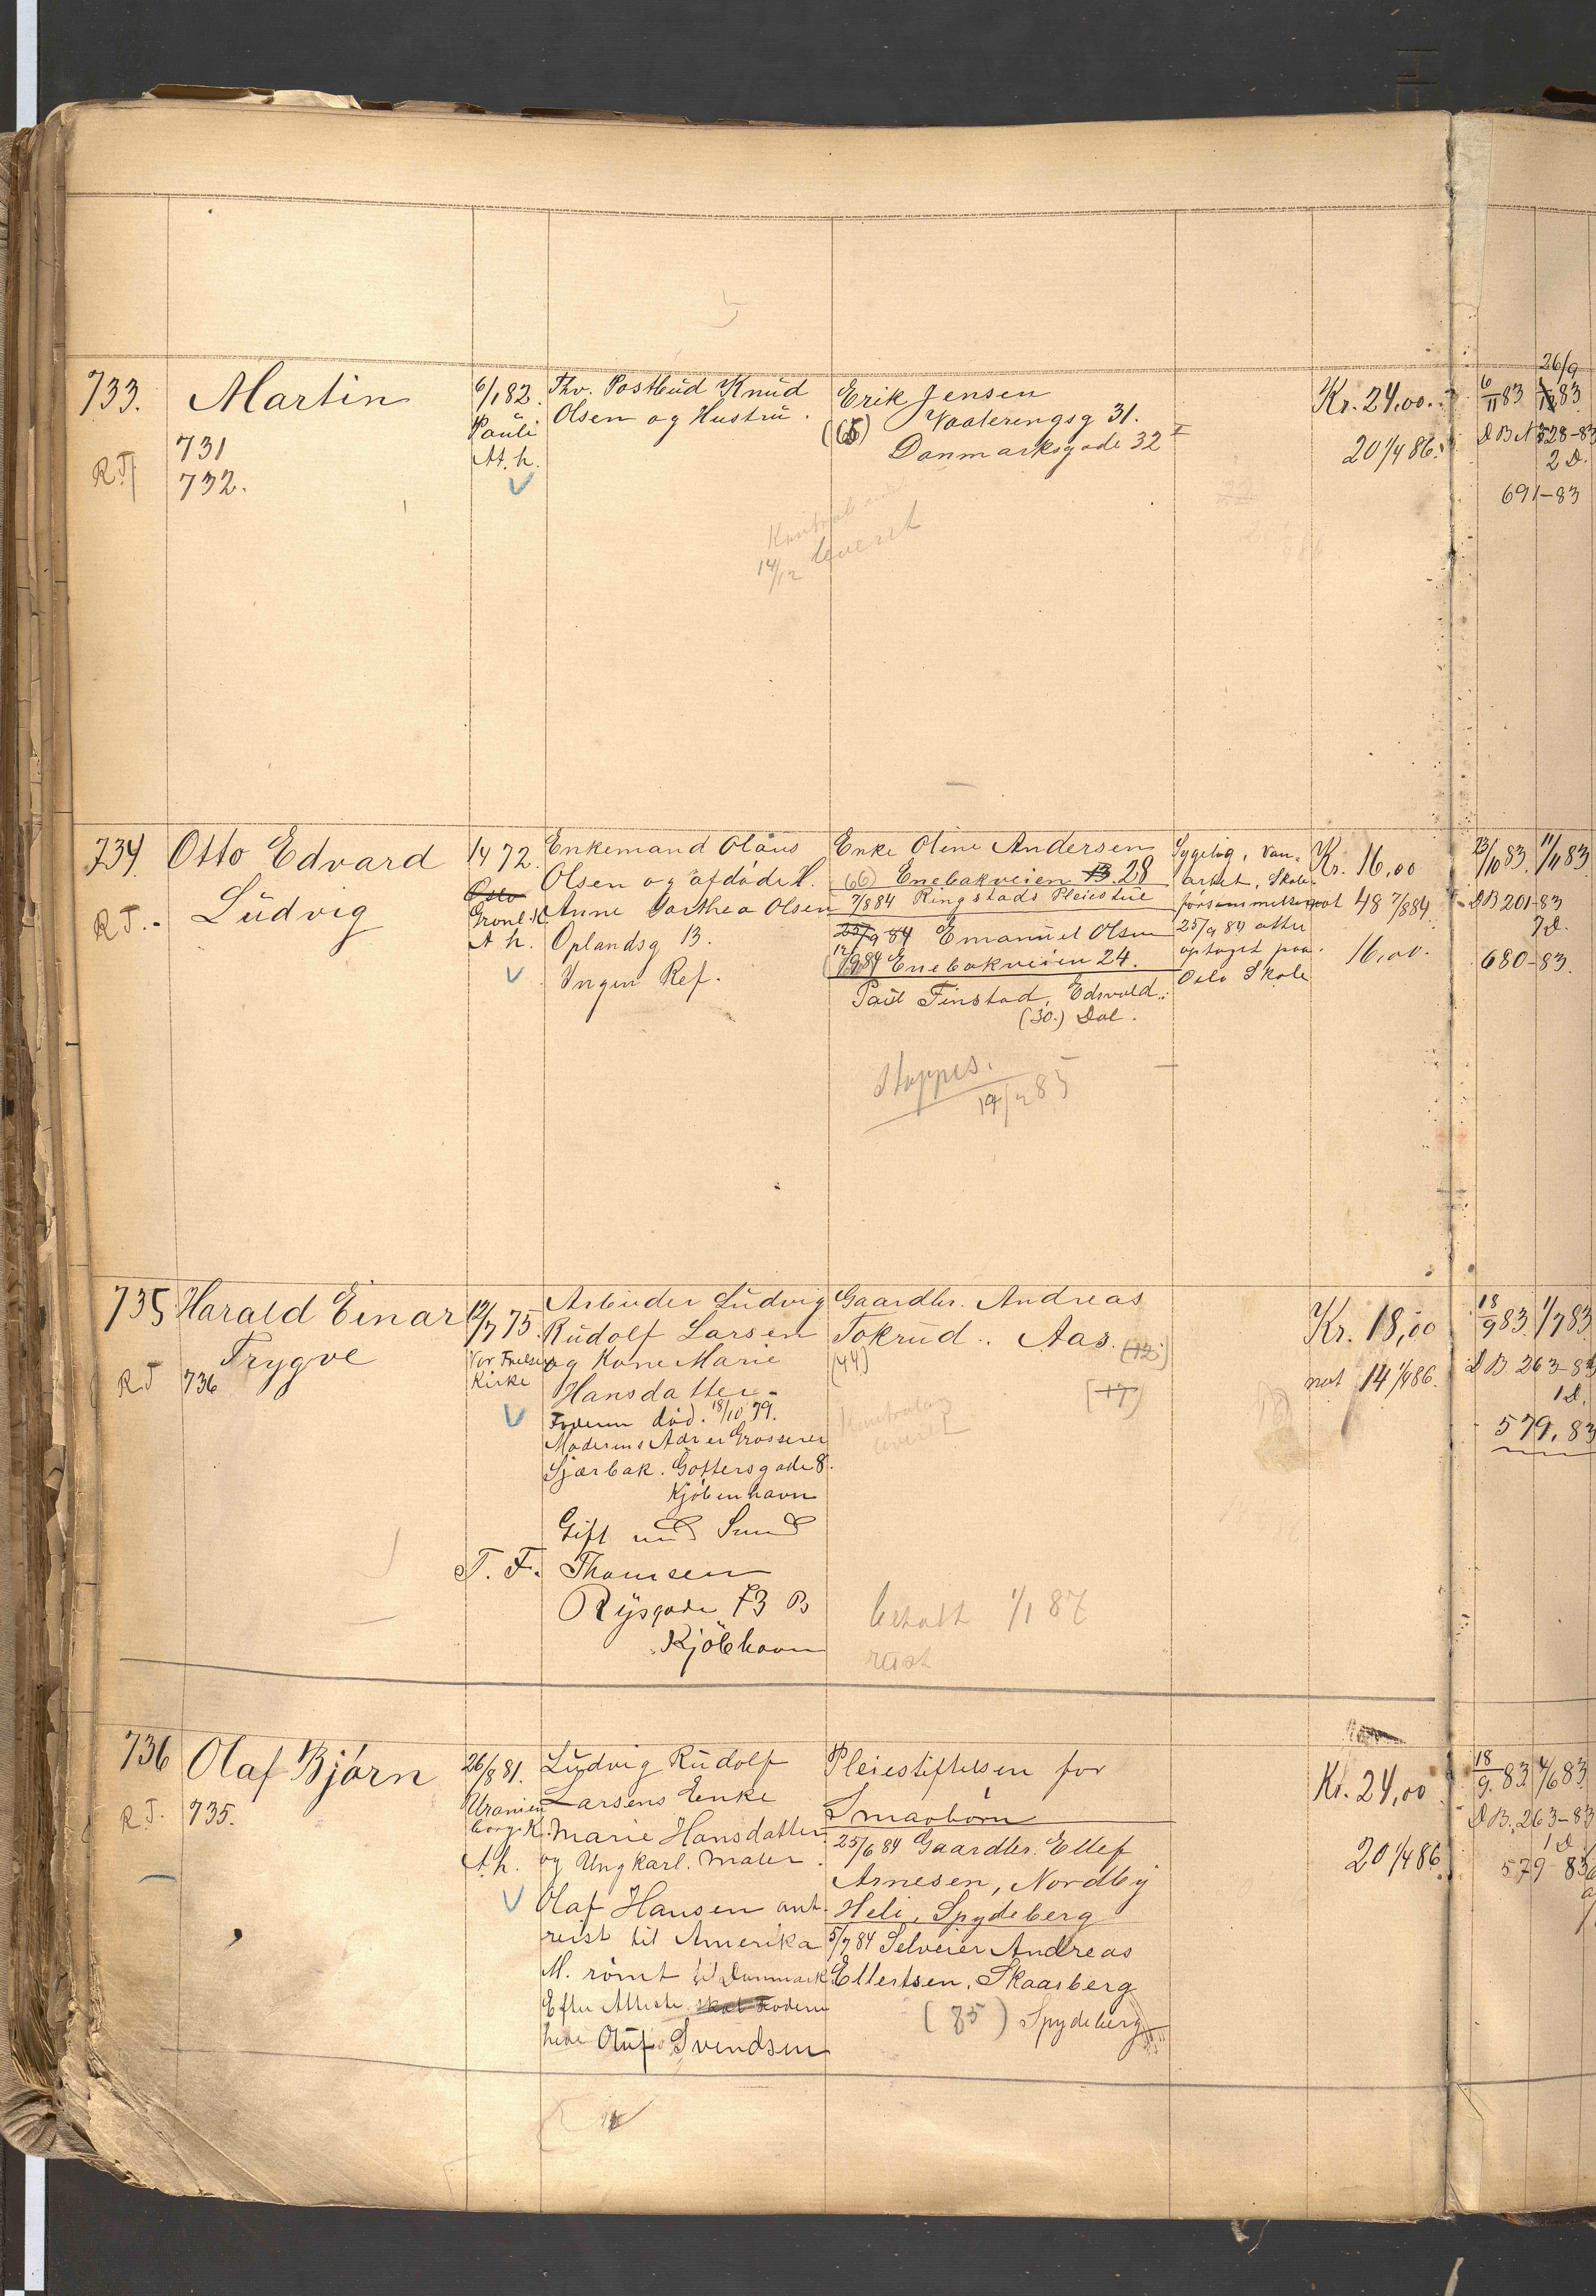 733.
Martin
731
732.
R.T.
6/1 82.
Pauli
A. h.
Thv. Postbud Knud
Olsen og Hustru.
Erik Jensen
Vaalerengsg 31.
Danmarksgade 32
Kontrol
leveret
14/12
Kr. 24,00.
20 1/4 86.
6/11 83
26/9
83
691-83
2 D.
734.
Otto Edvard
Ludvig
R.T.
14 72.
Oslo
Gronl. K
A h.
Enkemand Olaus
Olsen og afdøde H.
Anne Dorthea Olsen
Oplandsg 13.
Ingen Ref.
Enke Oline Andersen
(66) Enebakveien 28
7/8 84 Ringstads Pleiestue
25/9 84 Emanuel Olsen
Enebakveien 24.
Paul Finstad, Edsvold.
(30.) Dal.
Stoppes.
85
Sygelig, Van-
artet, Skole-
forsømmelser
25/9 84 atter
optaget paa
Oslo Skole
Kr. 16,00
not 48 7/8 84
16,00.
23/10 83. 11/11 83
DB 201-83
7 D.
680-83.
735
Harald Einar
Trygve
R.T
736
12/7 75.
Vor Frelsers
Kirke
Arbeider Ludvig
Rudolf Larsen
og Kone Marie
Hansdatter.
Faderen død. 18/10 79.
Moderens Adr er Grosserer
Sjærbak. Gottersgade 8.
Kjöbenhavn
Gift med Smed
T. F. Thomsen
Rysgade 73 B
Kjöbhavn
Gaardbr. Andreas
Tokrud.. Aas. (12)
(44)
(17)
Kontrolen
leveret
betalt 1/1 87
rest
Kr. 18,00
not 14 1/4 86.
18/9 83. 1/7 83
DB. 263-83
1 D.
579. 83
736
Olaf Bjørn
R.T.
735.
26/8 81.
Uranien
borg. K.
A. h.
Ludvig Rudolf
Larsens Enke
Marie Hansdatter
og Ungkarl. Maler
Olaf Hansen ant.
reist til Amerika
M. rømt til Danmark.
Efter Atteste skal Faderen
hede Oluf Svendsen
Pleiestiftelsen for
Smaabørn
25/6 84 Gaardbr. Ellef
Arnesen, Nordby
Heli, Spydeberg
5/7 84 Selveier Andreas
Ellertsen, Skaarberg
(85) Spydeberg
Kr. 24,00
20 1/4 86
18/9. 83. 4/6 83
DB. 263-83
1 D.
579 83